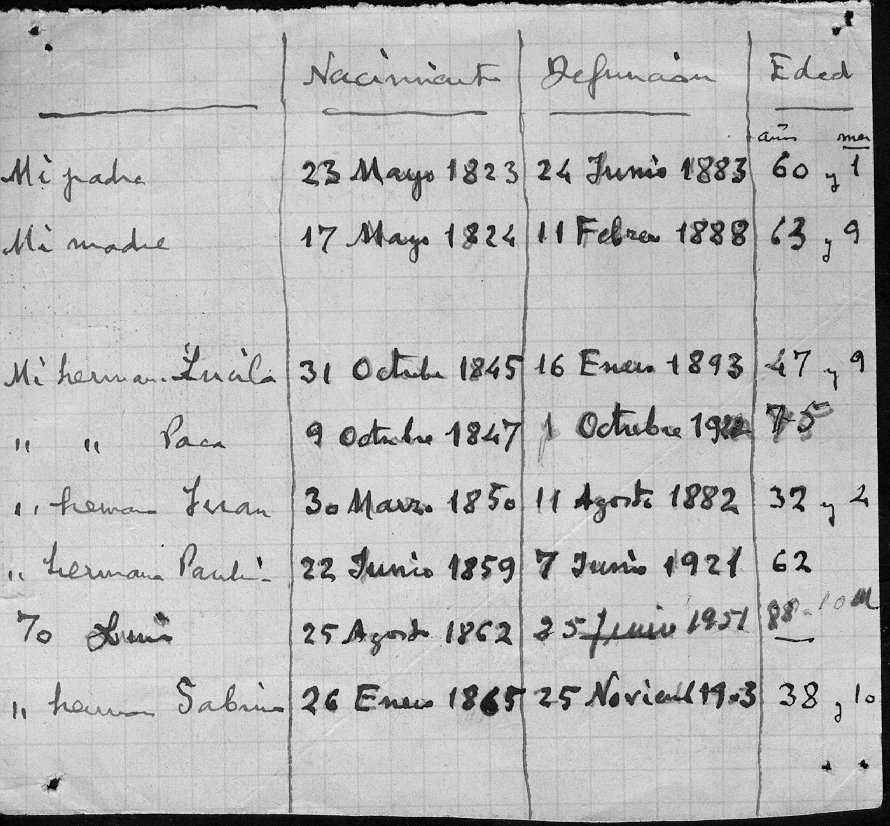 Nacimiento Defunción Edad
años mes
Mi padre 23 Mayo 1823 24 Junio 1883 60 y 1
Mi madre 17 Mayo 1824 11 Febrero 1888 63 y 9
Mi hermana Lucila 31 Octubre 1845 16 Enero 1893 47 y 9
" " Paca 9 Octubre 1847 1 Octubre 75
" hermano Juan 30 Marzo 1850 11 Agosto 1882 32 y
" hermana 22 Junio 1859 7 Junio 1921 62
Yo Luis 25 Agosto 1862 25 Junio 1951 88-10 m
" hermano Sabino 26 Enero 1865 25 1903 38 y 10